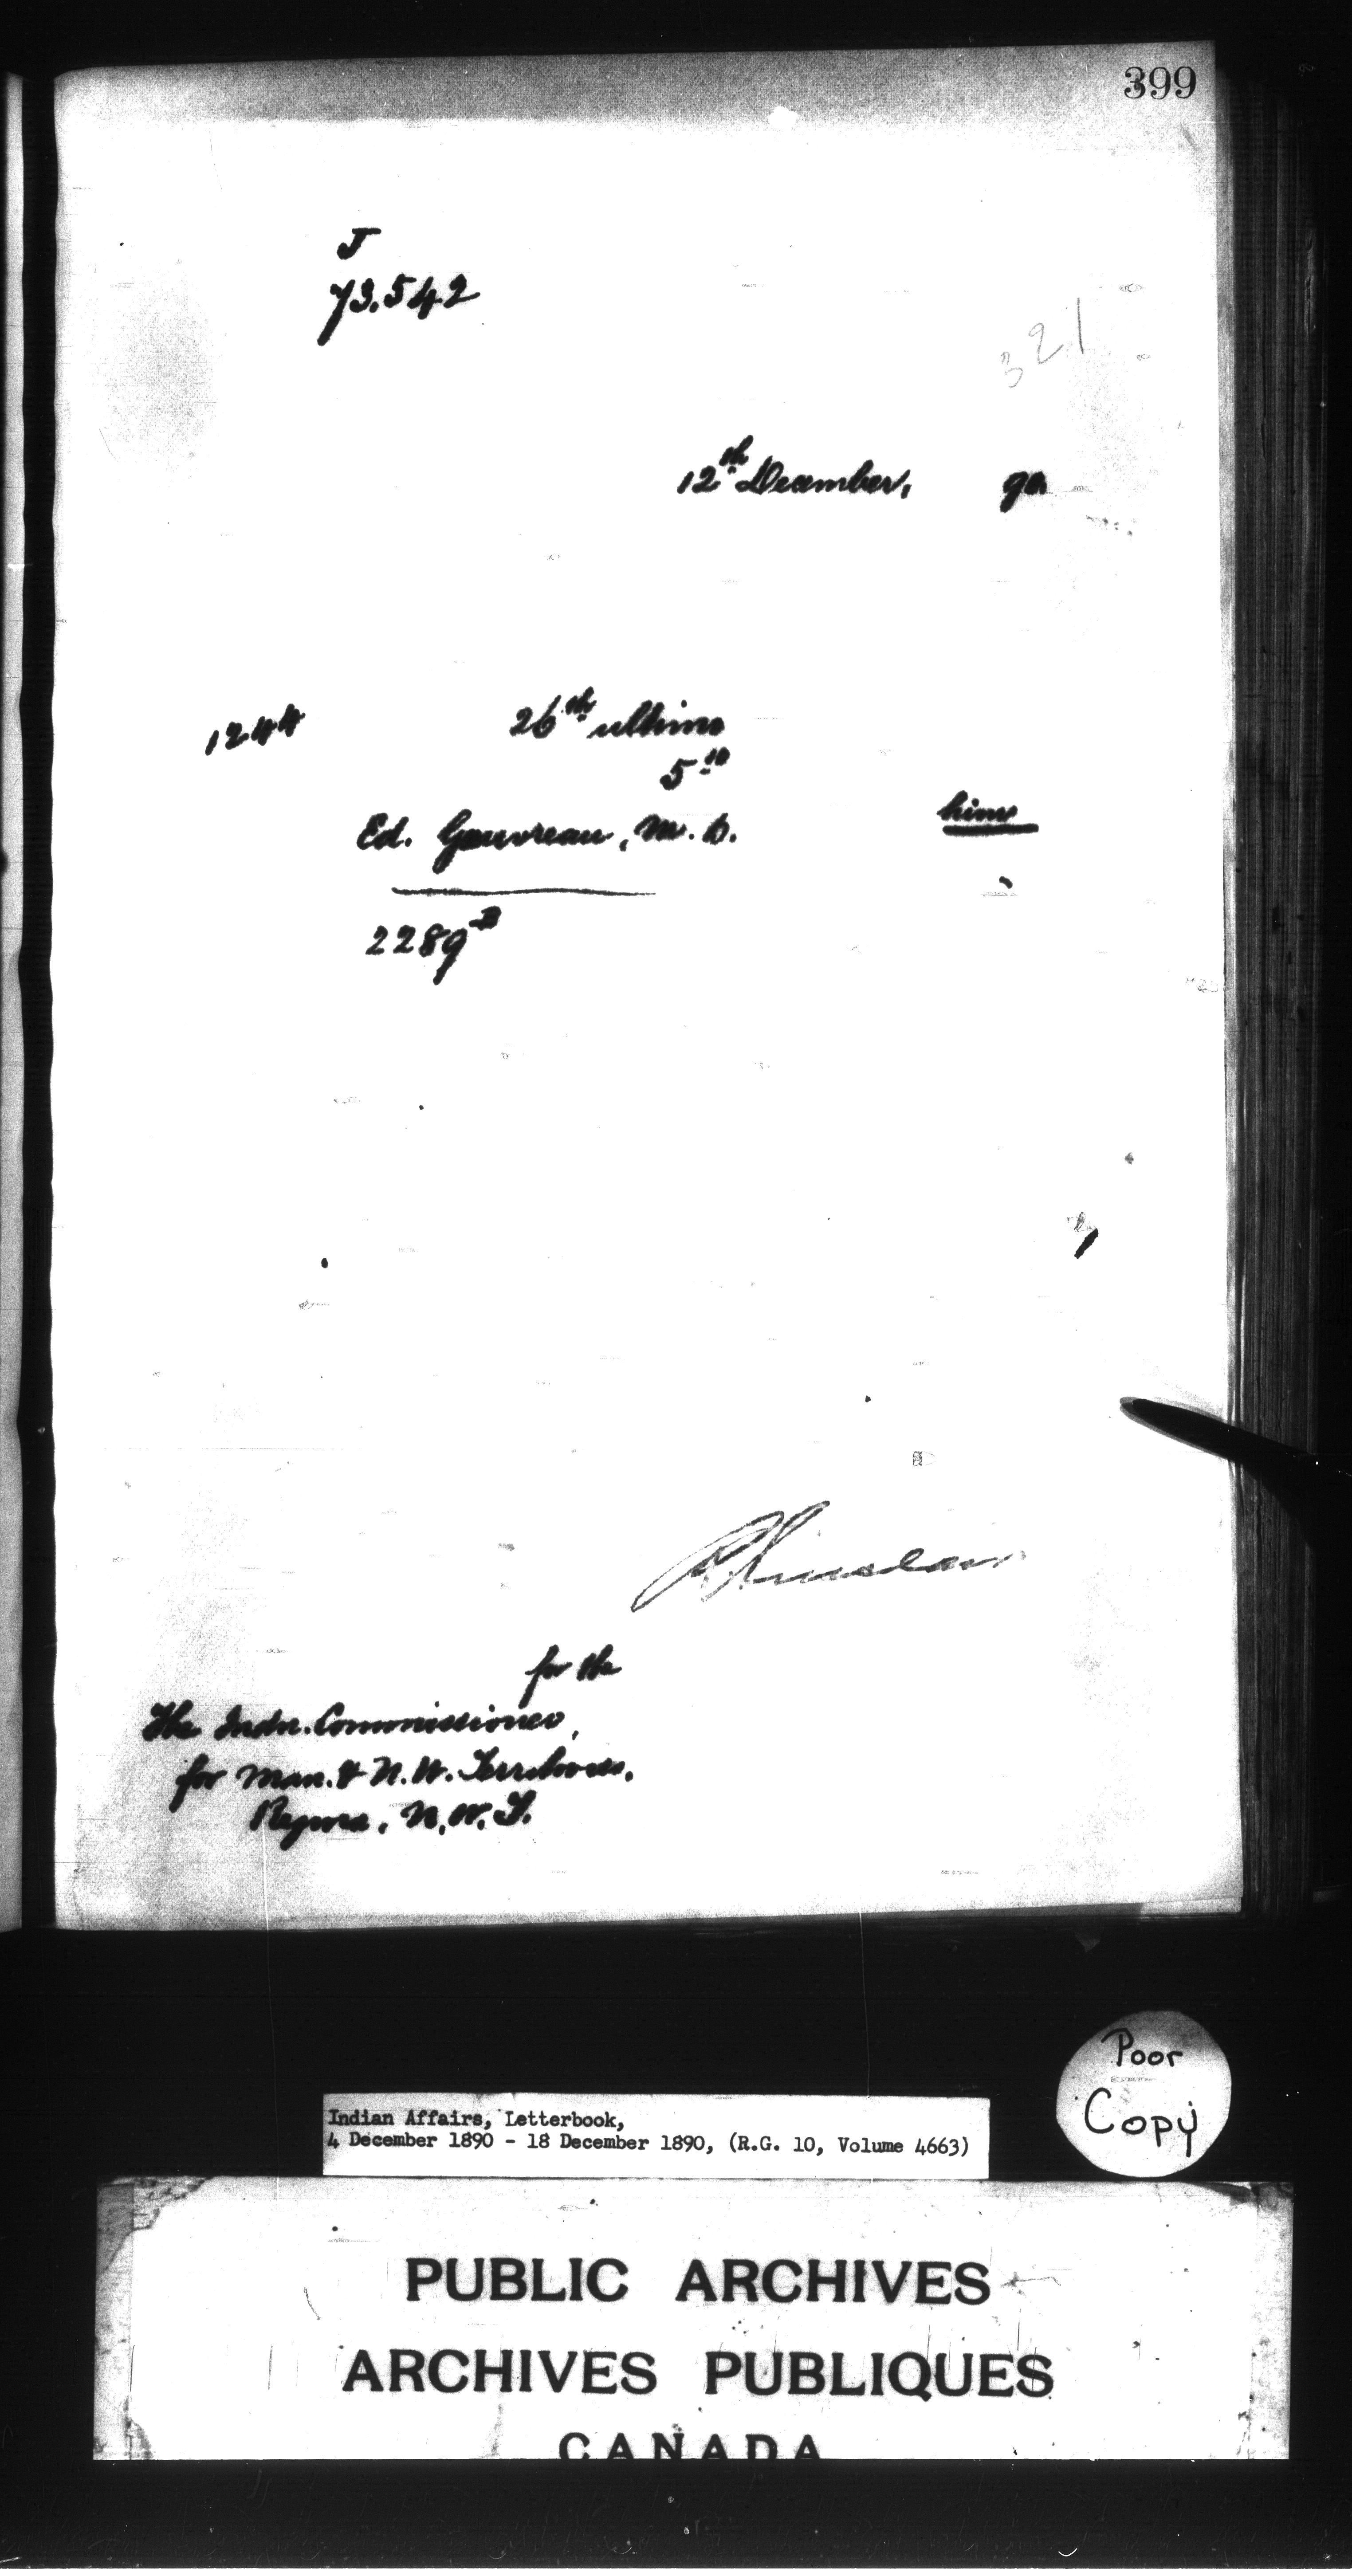 399
J
73.542
321
12th December, 90.
1244 26th ultimo
5th
Ed. Gauvreau, M.D. him
2289
for the
The Indn. Commissioner,
for Man. & N.W. Territories,
Regina, N.W.T.
Poor
Copy
Indian Affairs, Letterbook,
4 December 1890 - 18 December 1890, (R.G. 10, Volume 4663)
PUBLIC ARCHIVES
ARCHIVES PUBLIQUES
CANADA